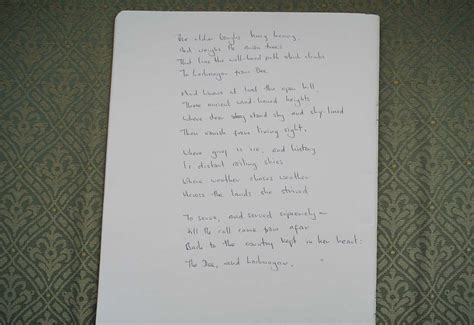 The alder boughs hang heavy,
And weighs the rowan trees
That line the well-head path which climbs
To Lochnagar from Dee
And leaves at last the open hill,
Those ancient wind-honed heights
Where deer stand sky and sky-lined
Then vanish from living sight,
Where grey is ice, and history
In distant rolling skies
Where weather chases weather
Across the lands she strived
To serve, and served supremely –
Till the call came from afar
Back to the country kept in her heart:
The Dee, and Lochnagar.